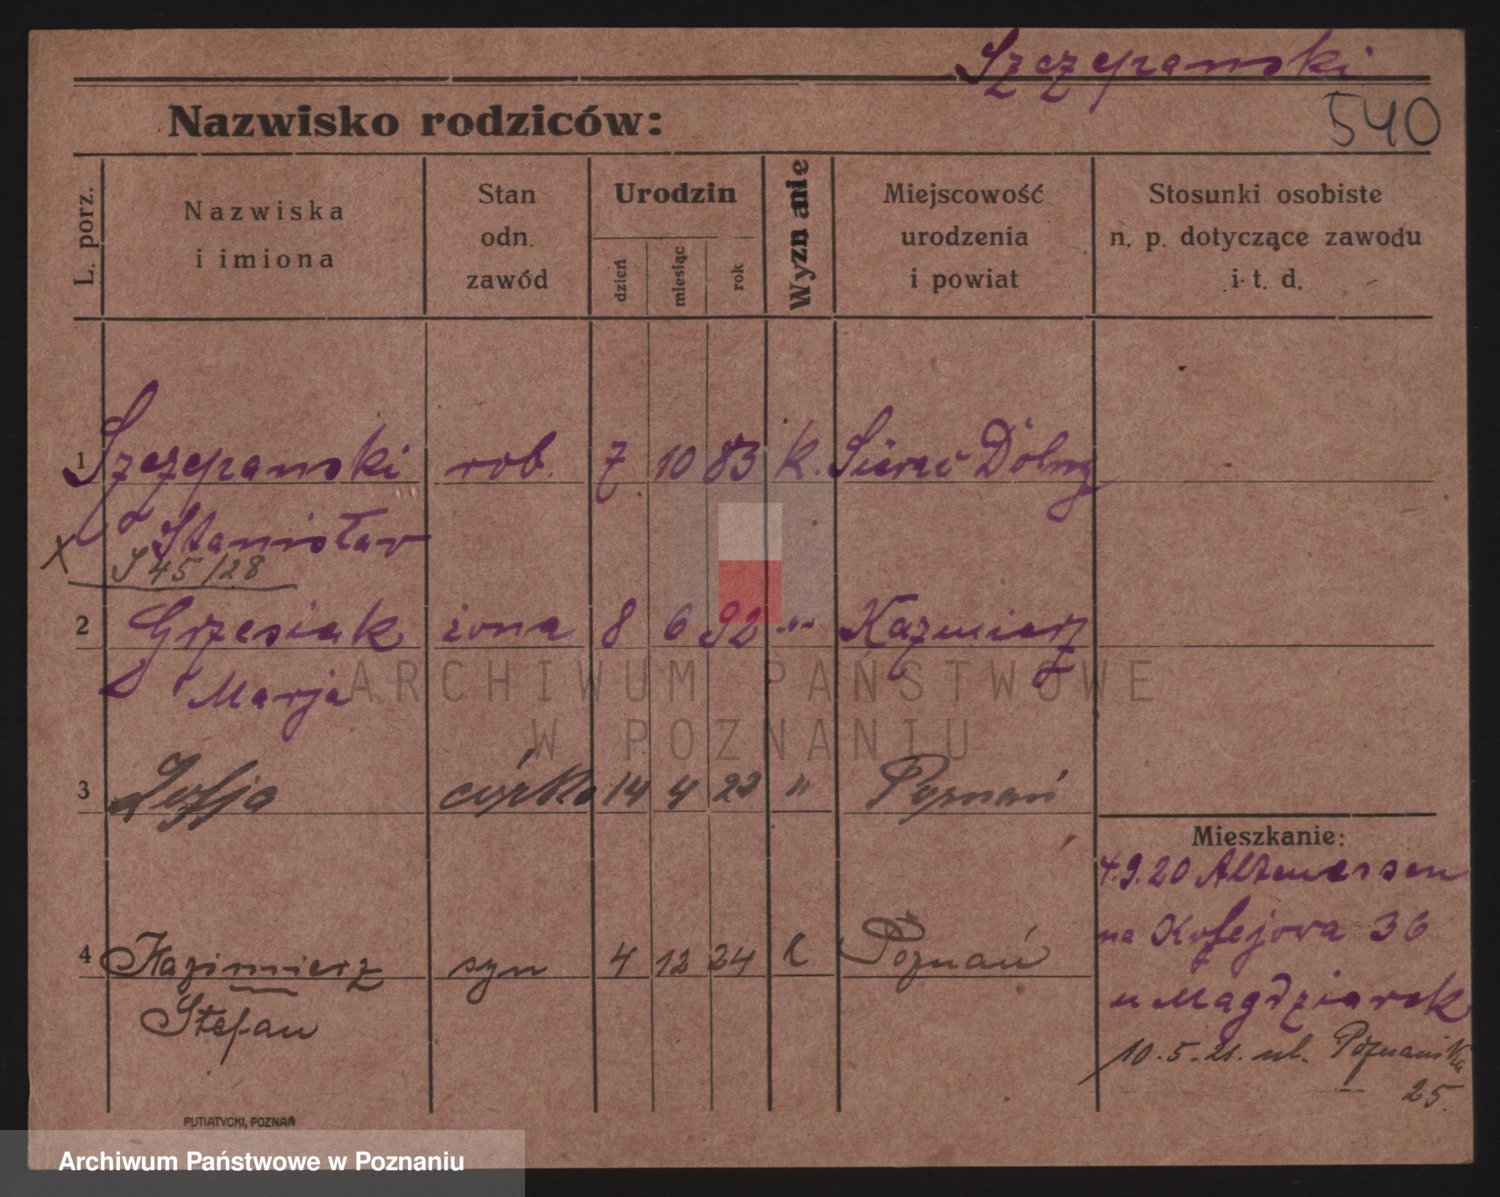 Szczepanski
540
Nazwisko rodziców:
L. porz.
Nazwiska
i imiona
Stan
odn.
zawód
Urodzin
dzień
miesiąc
rok
Wyznanie
Miejscowość
urodzenia
i powiat
Stosunki osobiste
n. p. dotyczące zawodu
i t. d.
1 Szczepanski rob. 7 10 83 k. Dolny
Stanisław
X
S 45/28
2 Grzesiak żona 8 6 92 -"- Kazmierz
Marja
ARCHIWUM PAŃSTWOWE
W POZNANIU
3 Zofja córka 14 4 22 " Poznań
Mieszkanie:
4.9.20
na Kolejova 36
u Magdziarek
10.5.21. ul. Poznańska
25.
4 Kazimierz syn 4 12 24 k Poznań
Stefan
PUTIATYCKI, POZNAŃ
Archiwum Państwowe w Poznaniu